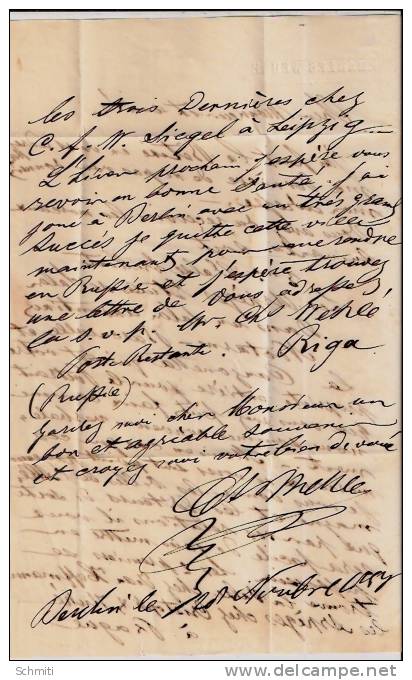 les trois Dernières chez
C. f. W. Siegel à Leipzig
L'hiver prochain j'espère vous
revoir en bonne santé! j'ai
joué à Berlin avec un très grand
succès je quitte cette ville
maintenant pour me rendre
en Rußie et j'espère trouver
une lettre de Vous adressée
la s.v.p. Mr. Chs Wehlé
Poste Restante. Riga
(Rußie)
gardez moi cher Monsieur un
bon et agréable souvenir
et croyez moi votre bien devoué
Chs Wehle
Berlin le 8bre
delcampe.net
Schmiti